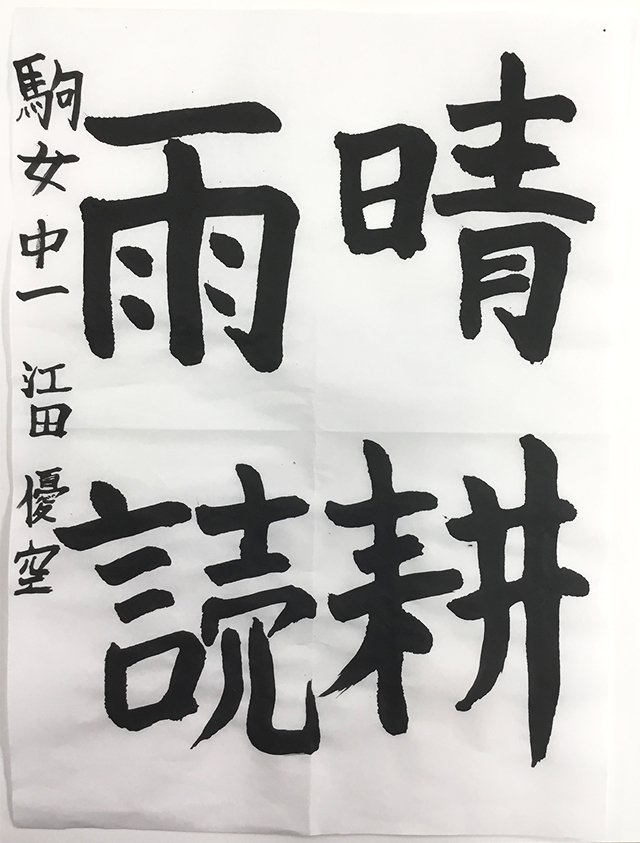 晴耕
雨読
駒女中一 江田優空